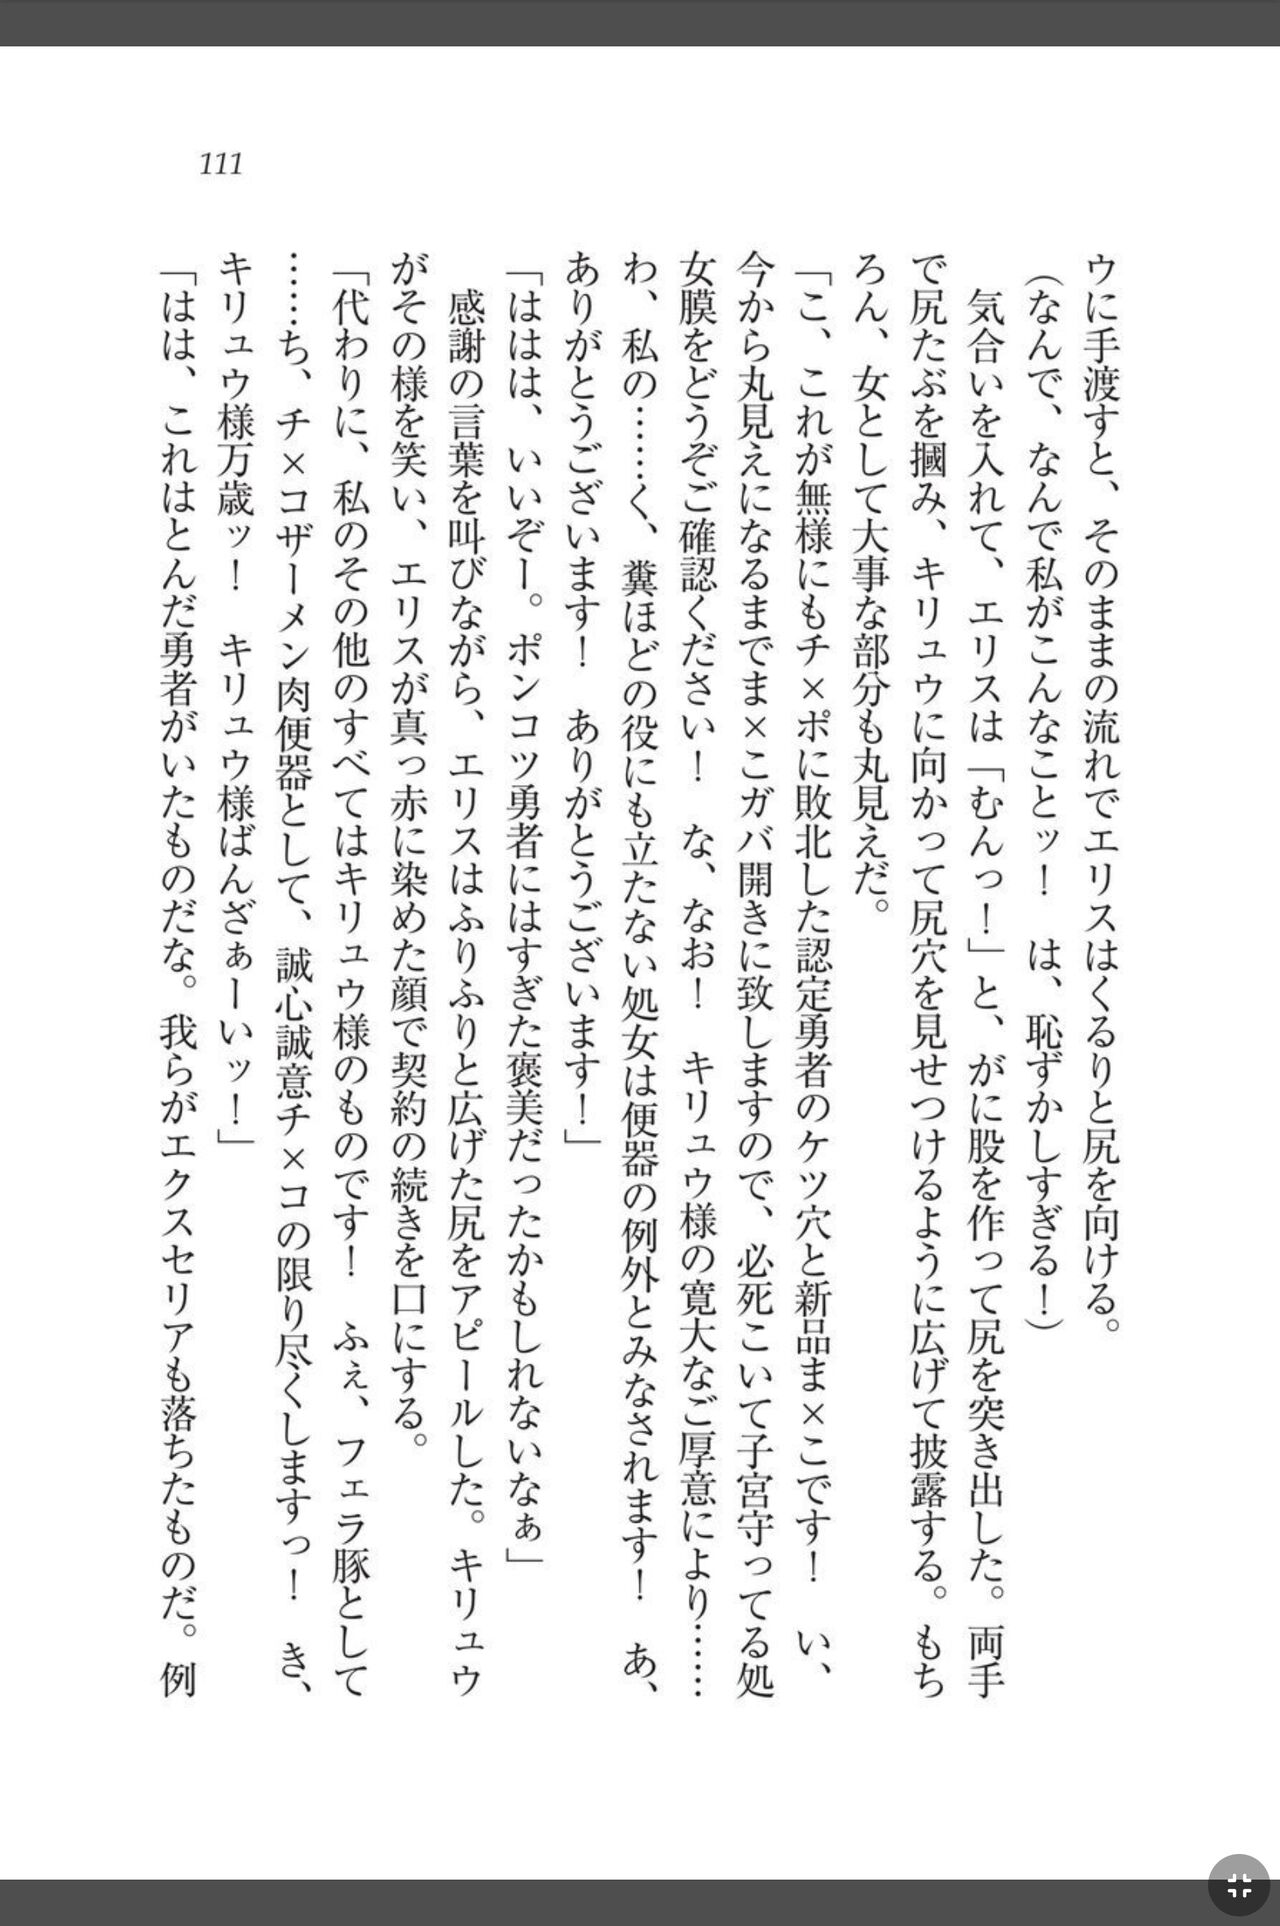 111
ウに手渡すと、そのままの流れでエリスはくるりと尻を向ける。
（なんで、なんで私がこんなことッ！　は、恥ずかしすぎる！）
　気合いを入れて、エリスは「むんっ！」と、がに股を作って尻を突き出した。両手
で尻たぶを摑み、キリュウに向かって尻穴を見せつけるように広げて披露する。もち
ろん、女として大事な部分も丸見えだ。
「こ、これが無様にもチ×ポに敗北した認定勇者のケツ穴と新品ま×こです！　い、
今から丸見えになるまでま×こガバ開きに致しますので、必死こいて子宮守ってる処
女膜をどうぞご確認ください！　な、なお！　キリュウ様の寛大なご厚意により……
わ、私の……く、糞ほどの役にも立たない処女は便器の例外とみなされます！　あ、
ありがとうございます！　ありがとうございます！」
「ははは、いいぞー。ポンコツ勇者にはすぎた褒美だったかもしれないなぁ」
　感謝の言葉を叫びながら、エリスはふりふりと広げた尻をアピールした。キリュウ
がその様を笑い、エリスが真っ赤に染めた顔で契約の続きを口にする。
「代わりに、私のその他のすべてはキリュウ様のものです！　ふぇ、フェラ豚として
……ち、チ×コザーメン肉便器として、誠心誠意チ×コの限り尽くしますっ！　き、
キリュウ様万歳ッ！　キリュウ様ばんざぁーいッ！」
「はは、これはとんだ勇者がいたものだな。我らがエクスセリアも落ちたものだ。例